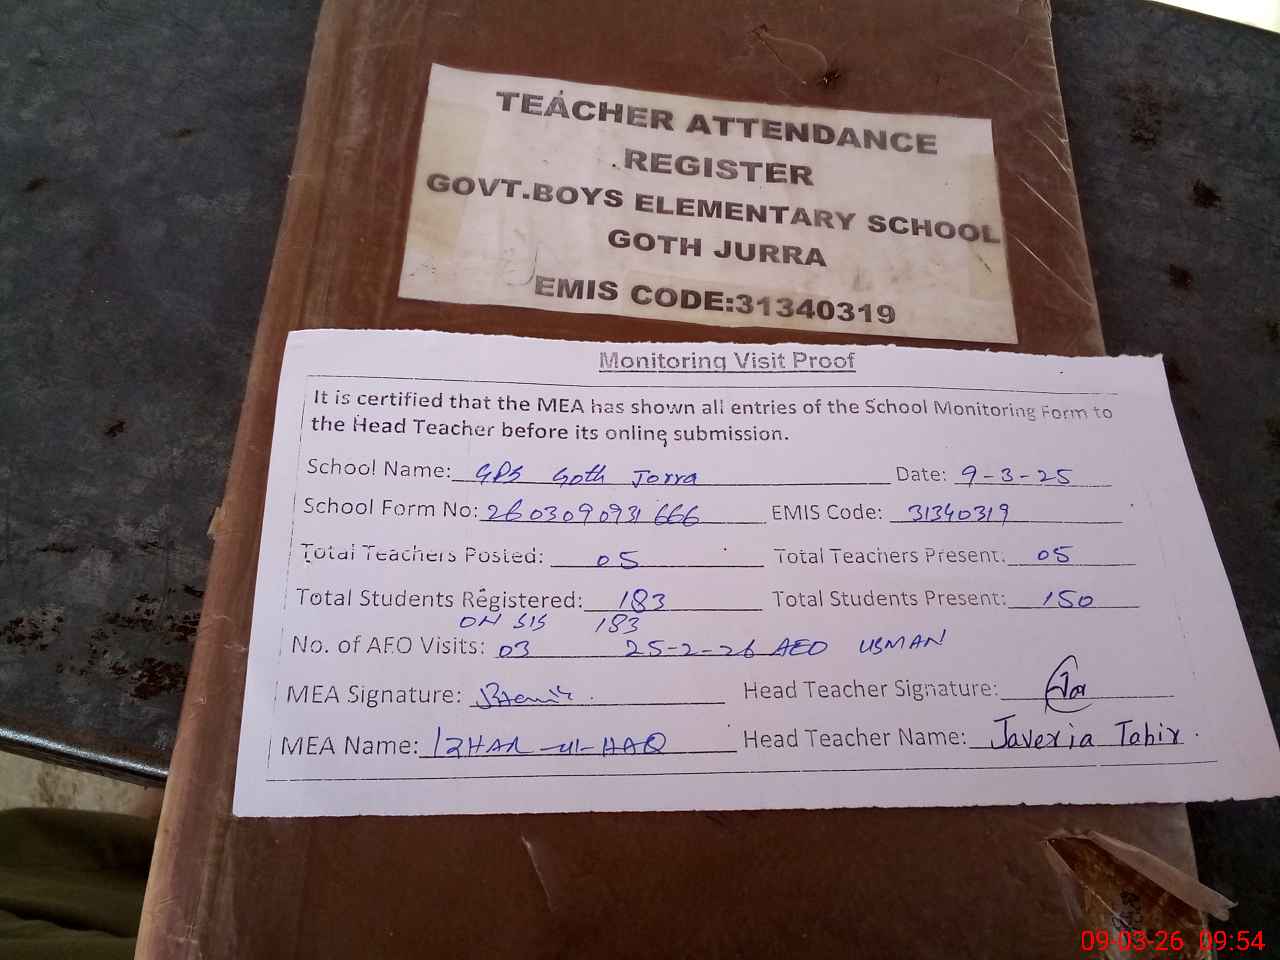 TEACHER ATTENDANCE
REGISTER
GOVT.BOYS ELEMENTARY SCHOOL
GOTH JURRA
EMIS CODE:31340319
Monitoring Visit Proof
It is certified that the MEA has shown all entries of the School Monitoring Form to
the Head Teacher before its online submission.
School Name: GPS Goth Jorra Date: 9-3-25
School Form No: 2603090931666 EMIS Code: 31340319
Total Teachers Posted: 05 Total Teachers Present: 05
Total Students Registered: 183 Total Students Present: 150
ON SIS 183
No. of AEO Visits: 03 25-2-26 AEO USMAN
MEA Signature: Head Teacher Signature:
MEA Name: IZHAR-ul-HAQ Head Teacher Name: Javeria Tahir.
09-03-26 09:54